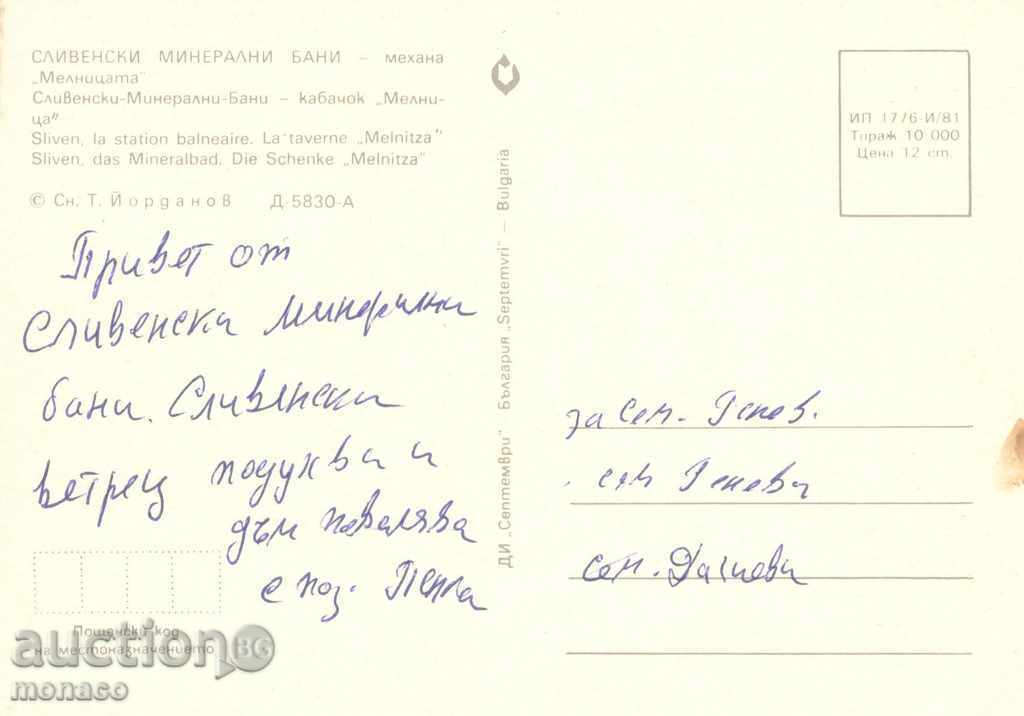 СЛИВЕНСКИ МИНЕРАЛНИ БАНИ – механа
„Мелницата"
Сливенски-Минерални-Бани – кабачок „Мелни-
ца"
Sliven, la station balneaire. La taverne „Melnitza"
Sliven, das Mineralbad. Die Schenke „Melnitza"
© Сн. Т. Йорданов Д-5830-А
Привет от
Сливенска минерални
бани. Сливенски
ветрец подухва и
дъм повалява
с поз. Пенка
Пощенски код
на местоназначението
ДИ „Септември" България „Septemvri" – Bulgaria
ИП 1776-И/81
Тираж 10 000
Цена 12 ст.
за сем. Генов.
сем Генови
сем.
auctionBG
monaco